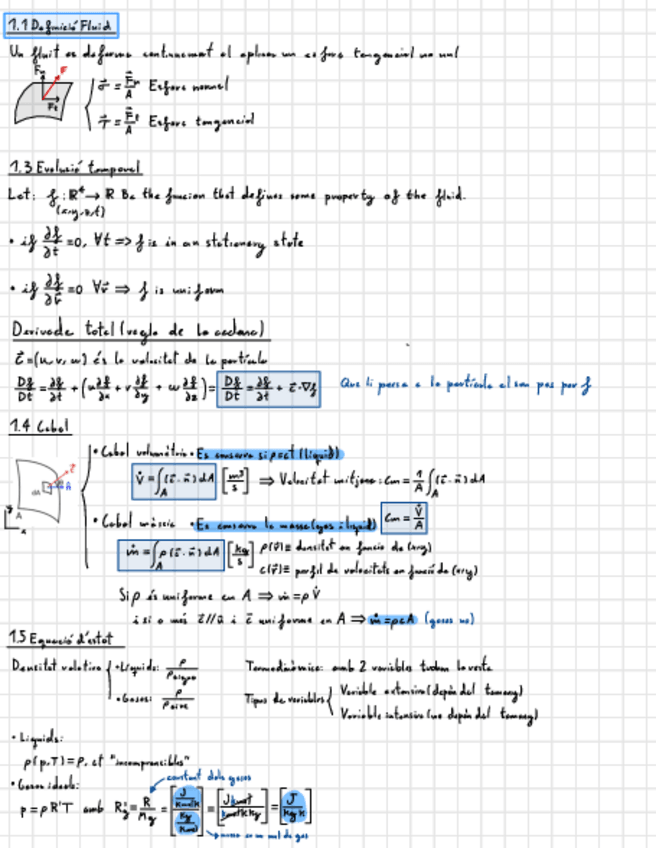 1.1 Definició Fluid
Un fluit es deforma continuament al aplicar un esforç tangencial no nul
Fn F
Ft
σ⃗ = F⃗n/A Esforç normal
τ⃗ = F⃗t/A Esforç tangencial
1.3 Evolució temporal
Let: f: R⁴ → R Be the funcion that defines some property of the fluid.
(x,y,z,t)
• if ∂f/∂t = 0, ∀t => f is in an stationary state
• if ∂f/∂r⃗ = 0 ∀r⃗ ⇒ f is uniform
Derivada total (regla de la cadena)
c⃗ = (u, v, w) és la velocitat de la partícula
Df/Dt = ∂f/∂t + (u ∂f/∂x + v ∂f/∂y + w ∂f/∂z) = Df/Dt = ∂f/∂t + c⃗ · ∇f Que li passa a la partícula al seu pas per f
1.4 Cabal
• Cabal volumètric • Es conserva si ρ=ct (líquid)
V̇ = ∫A (c⃗ · n⃗) dA [m³/s] ⇒ Velocitat mitjana: cm = 1/A ∫A (c⃗ · n⃗) dA
• Cabal màssic • Es conserva la massa (gas i líquid) cm = V̇/A
ṁ = ∫A ρ (c⃗ · n⃗) dA [kg/s] ρ(r⃗) ≡ densitat en funcio de (x,y)
c(r⃗) ≡ perfil de velocitats en funció de (x,y)
Si ρ és uniforme en A ⇒ ṁ = ρ V̇
i si a més c⃗ // n⃗ i c⃗ uniforme en A ⇒ ṁ = ρcA (gasos no)
1.5 Equació d'estat
Densitat relativa • Líquids: ρ/ρaigua Termodinàmica: amb 2 variables trobem la resta
• Gasos: ρ/ρaire Tipus de variables Variable extensiva (depèn del tamany)
Variable intensiva (no depèn del tamany)
• Líquids:
ρ(p,T) = ρ, ct "incompressibles"
• Gasos ideals: constant dels gasos
p = ρ R' T amb R'g = R/Mg = [J/kmolK / kg/kmol] = [J kmol/kmol K kg] = [J/kg K]
massa en un mol de gas